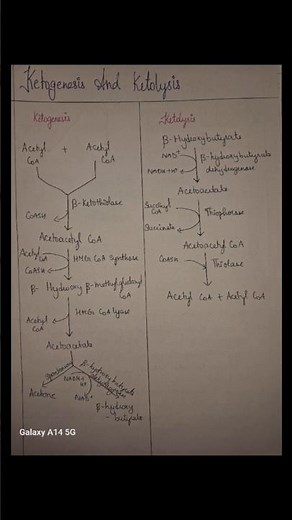 Ketogenesis And Ketolysis
Ketogenesis
Acetyl CoA + Acetyl CoA
β-Ketothiolase
CoASH
Acetoacetyl CoA
Acetyl CoA
HMG CoA Synthase
CoASH
β-Hydroxy β-methylglutaryl CoA
HMG CoA lyase
Acetyl CoA
Acetoacetate
Spontaneous
β-hydroxy butyrate dehydrogenase
NADH+H+
NAD+
Acetone
β-hydroxy butyrate
Ketolysis
β-Hydroxybutyrate
NAD+
β-hydroxybutyrate dehydrogenase
NADH+H+
Acetoacetate
Succinyl CoA
Thiophorase
Succinate
Acetoacetyl CoA
CoASH
Thiolase
Acetyl CoA + Acetyl CoA
Galaxy A14 5G